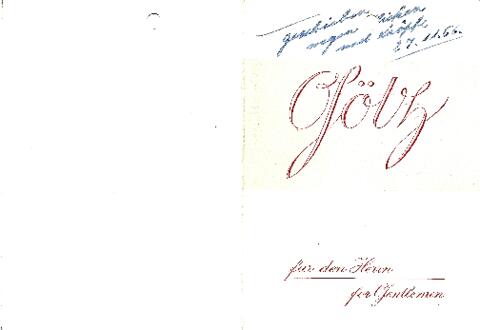 geschrieben
wegen
und
27.11.66.
Götz
für den Herrn
for Gentlemen